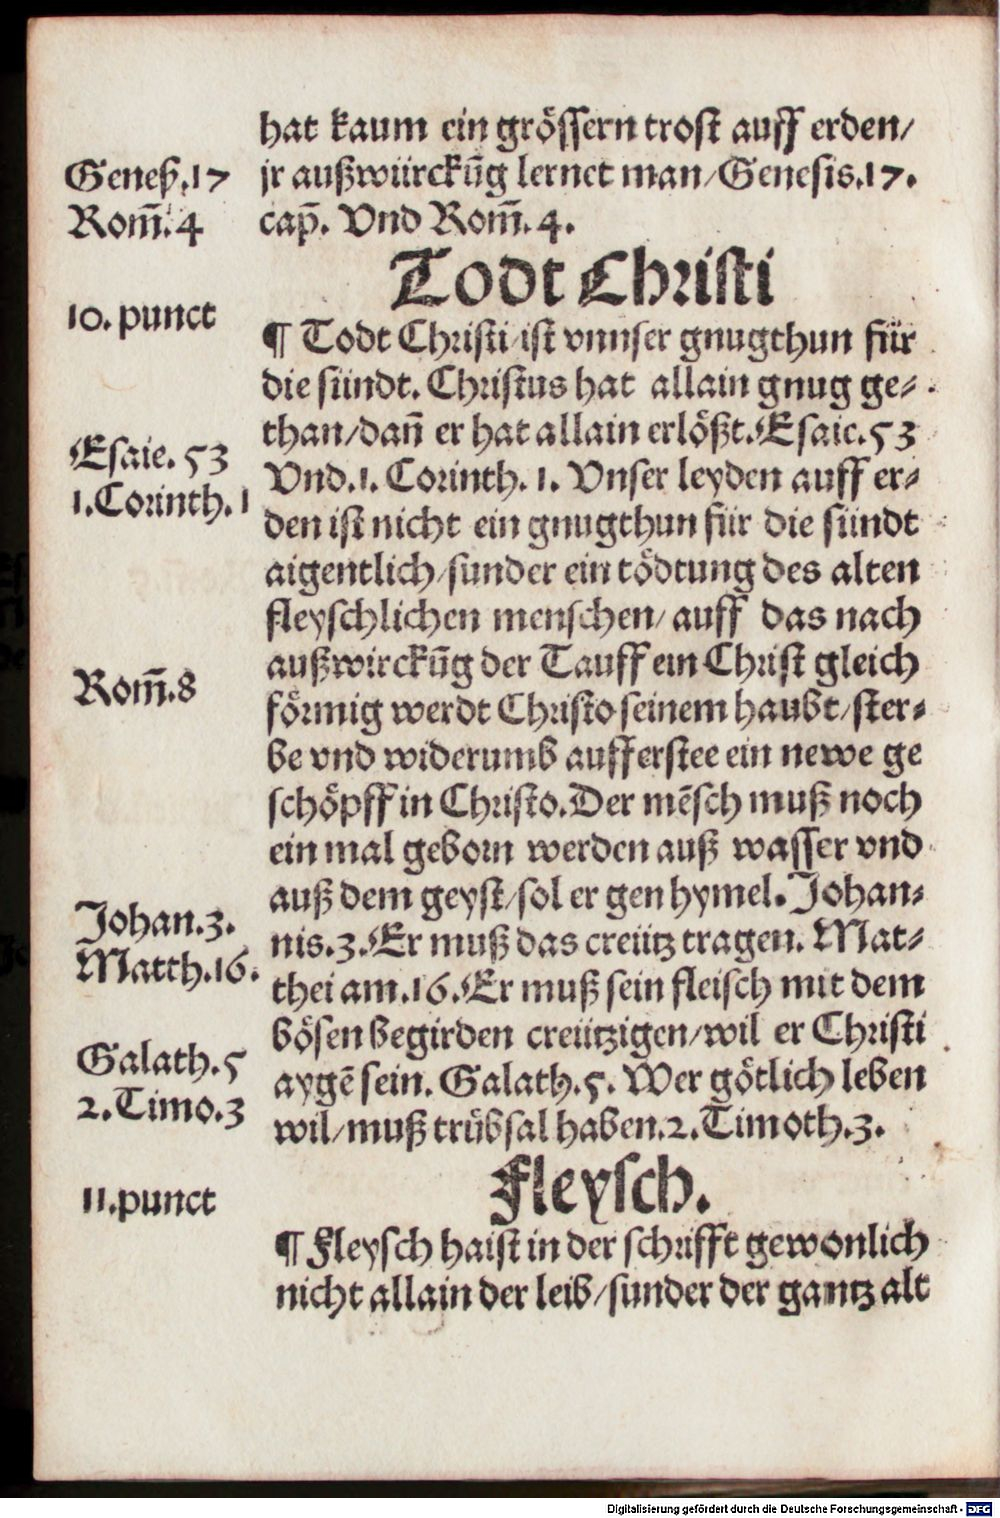 hat kaum ein grössern trost auff erden/
Geneß.17
jr außwürckūg lernet man/Genesis.17.
Rom̄.4
cap̄. Vnd Rom̄.4.
Todt Christi
10. punct
¶ Todt Christi/ist vnnser gnugthun für
die sündt. Christus hat allain gnug ge-
than/dan̄ er hat allain erlößt.Esaie.53
Esaie.53
Vnd.1. Corinth. 1. Vnser leyden auff er-
1.Corinth.1
den ist nicht ein gnugthun für die sündt
aigentlich/sunder ein tödtung des alten
fleyschlichen menschen/ auff das nach
außwirckūg der Tauff ein Christ gleich
Rom̄.8
förmig werdt Christo seinem haubt/ster-
be vnd widerumb aufferstee ein newe ge
schöpff in Christo.Der mēsch muß noch
ein mal geborn werden auß wasser vnd
auß dem geyst/sol er gen hymel. Johan-
Johan.3.
nis.3.Er muß das creütz tragen. Mat-
Matth.16.
thei am.16.Er muß sein fleisch mit dem
bösen begirden creützigen/wil er Christi
Galath.5
aygē sein. Galath.5. Wer götlich leben
2.Timo.3
wil/muß trübsal haben.2.Timoth.3.
Fleysch.
11.punct
¶ Fleysch haist in der schrifft gewonlich
nicht allain der leib/sunder der gantz alt
Digitalisierung gefördert durch die Deutsche Forschungsgemeinschaft - DFG